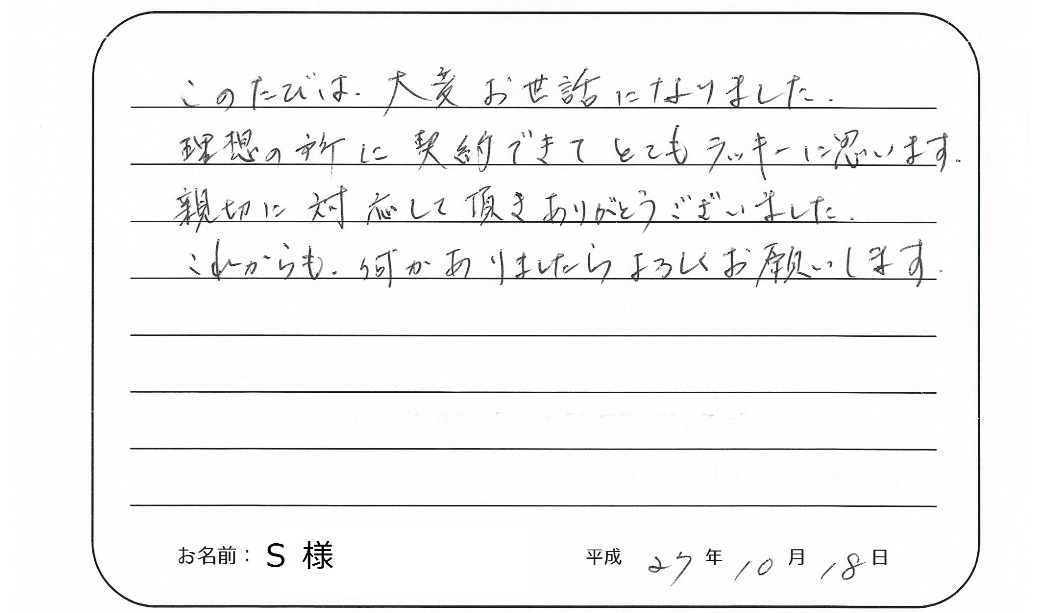 このたびは、大変お世話になりました。
理想の所に契約できてとてもラッキーに思います。
親切に対応して頂きありがとうございました。
これからも、何かありましたらよろしくお願いします。
お名前： S 様 平成 27 年 10 月 18 日